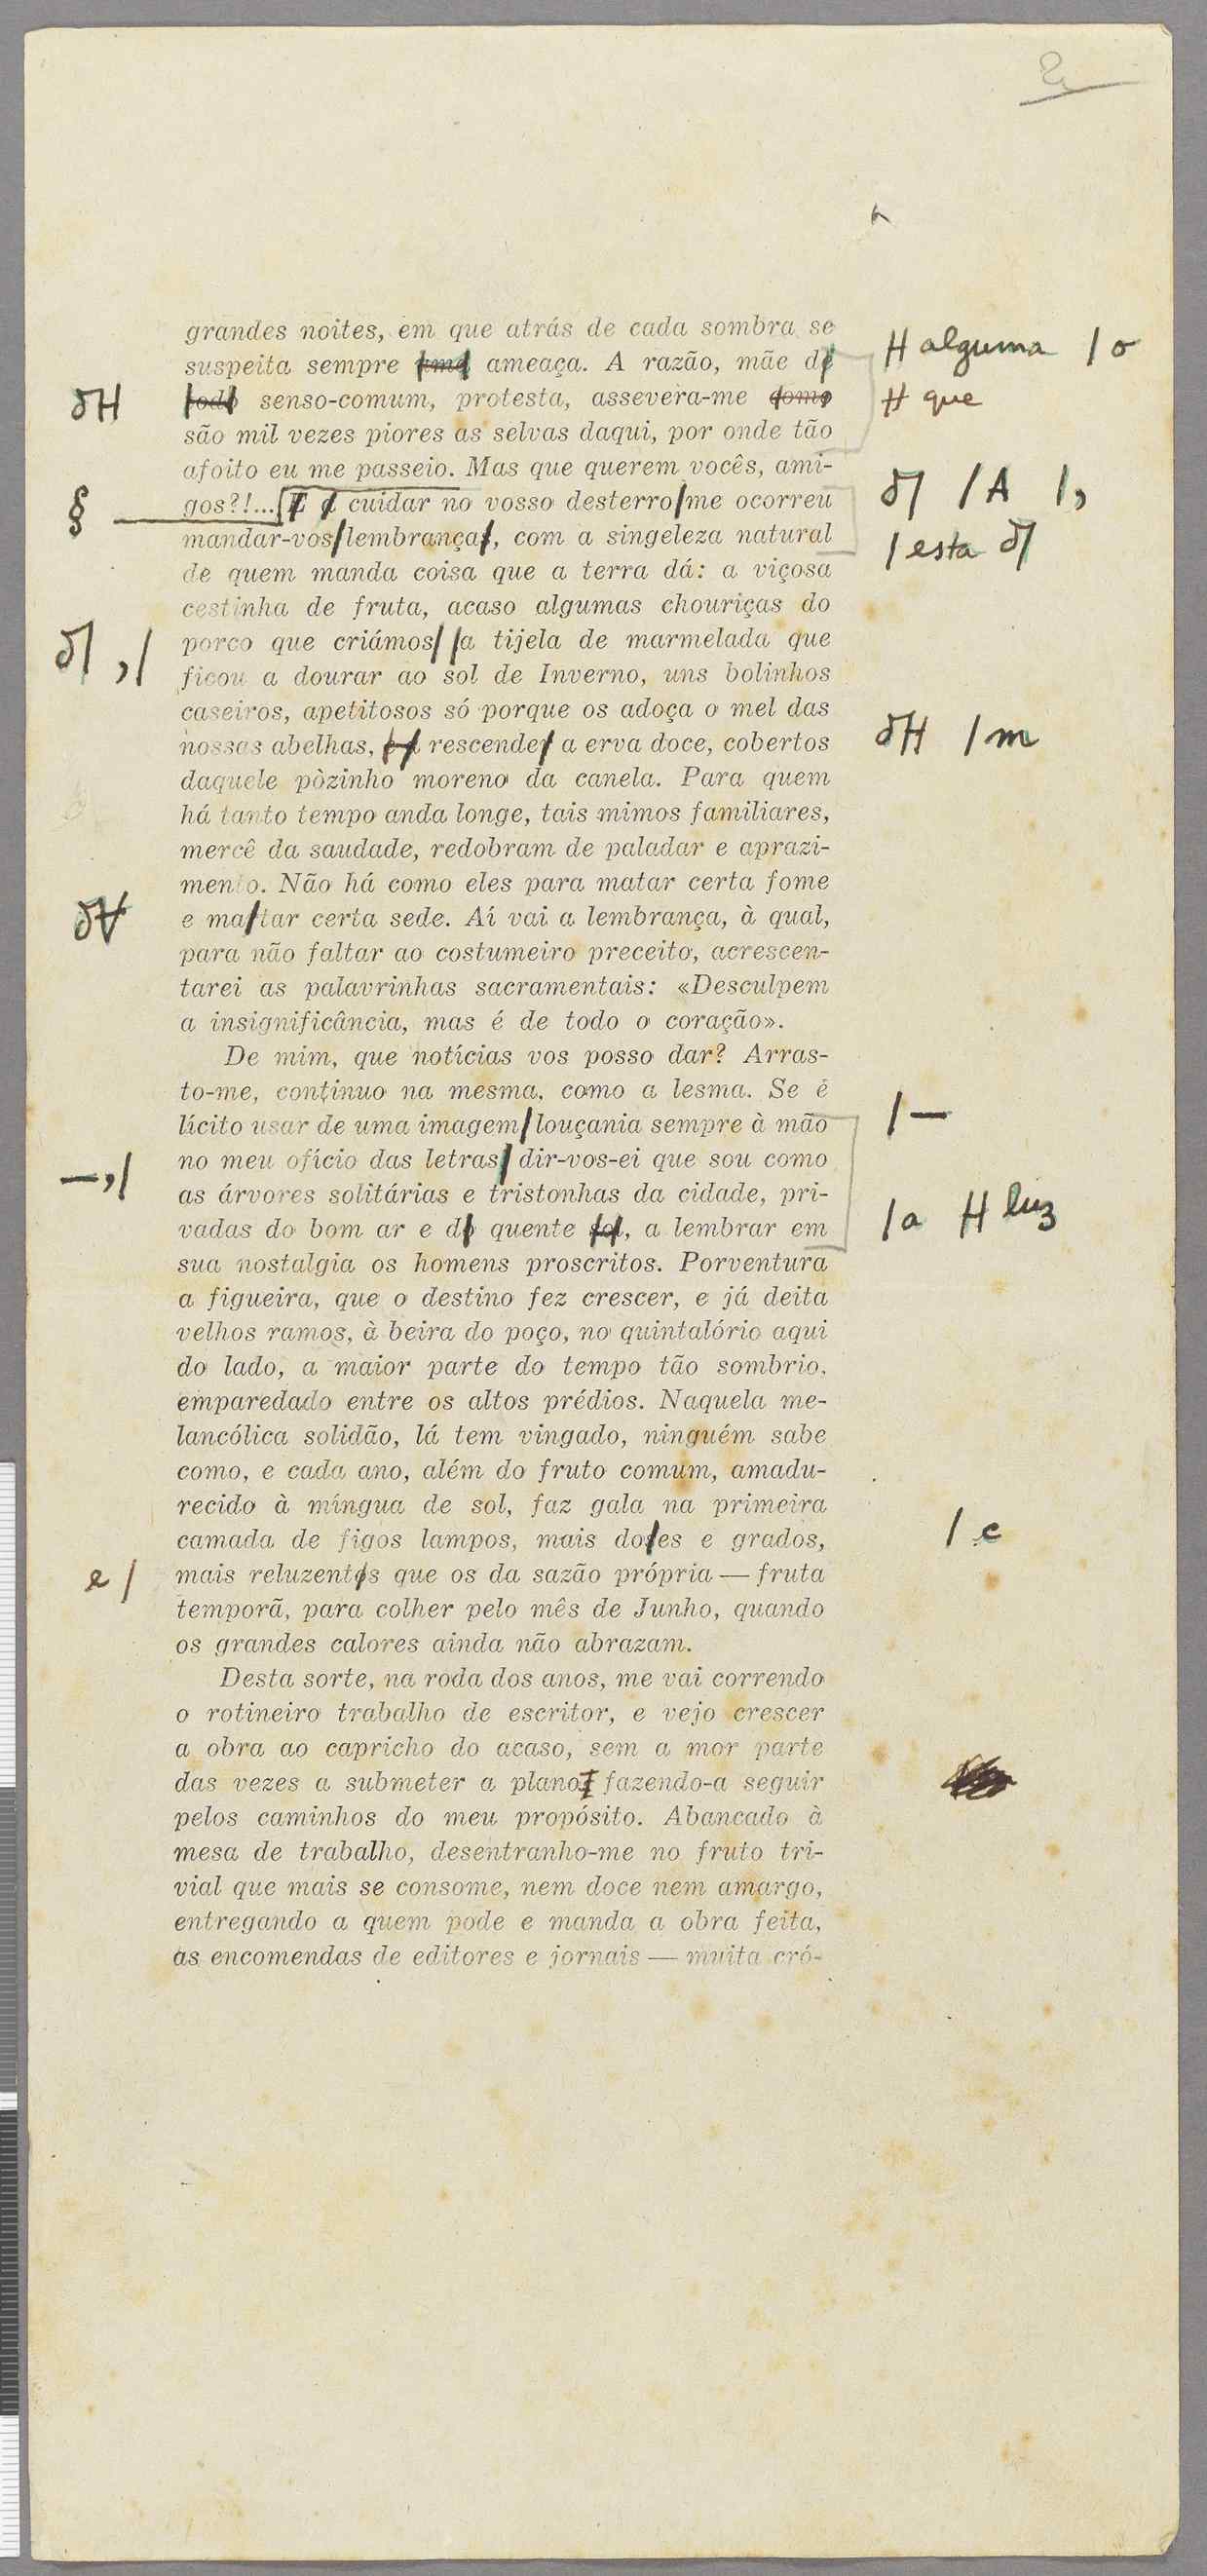 2
grandes noites, em que atrás de cada sombra se
suspeita sempre uma ameaça. A razão, mãe de
H alguma / o
todo senso-comum, protesta, assevera-me como
H que
são mil vezes piores as selvas daqui, por onde tão
afoito eu me passeio. Mas que querem vocês, ami-
§ gos?!... E a cuidar no vosso desterro/me ocorreu
/ A / ,
mandar-vos/lembranças, com a singeleza natural
/ esta
de quem manda coisa que a terra dá: a viçosa
cestinha de fruta, acaso algumas chouriças do
, / porco que criámos/ /a tijela de marmelada que
ficou a dourar ao sol de Inverno, uns bolinhos
caseiros, apetitosos só porque os adoça o mel das
nossas abelhas, rescende/ a erva doce, cobertos
/ m
daquele pòzinho moreno da canela. Para quem
há tanto tempo anda longe, tais mimos familiares,
mercê da saudade, redobram de paladar e aprazi-
mento. Não há como eles para matar certa fome
e ma/tar certa sede. Aí vai a lembrança, à qual,
para não faltar ao costumeiro preceito, acrescen-
tarei as palavrinhas sacramentais: «Desculpem
a insignificância, mas é de todo o coração».
De mim, que notícias vos posso dar? Arras-
to-me, continuo na mesma, como a lesma. Se é
lícito usar de uma imagem/louçania sempre à mão
/ —
—, / no meu ofício das letras/ dir-vos-ei que sou como
as árvores solitárias e tristonhas da cidade, pri-
vadas do bom ar e do quente sol, a lembrar em
/ a H luz
sua nostalgia os homens proscritos. Porventura
a figueira, que o destino fez crescer, e já deita
velhos ramos, à beira do poço, no quintalório aqui
do lado, a maior parte do tempo tão sombrio,
emparedado entre os altos prédios. Naquela me-
lancólica solidão, lá tem vingado, ninguém sabe
como, e cada ano, além do fruto comum, amadu-
recido à míngua de sol, faz gala na primeira
camada de figos lampos, mais do/es e grados,
/ c
e / mais reluzent/s que os da sazão própria — fruta
temporã, para colher pelo mês de Junho, quando
os grandes calores ainda não abrazam.
Desta sorte, na roda dos anos, me vai correndo
o rotineiro trabalho de escritor, e vejo crescer
a obra ao capricho do acaso, sem a mor parte
das vezes a submeter a plano, fazendo-a seguir
pelos caminhos do meu propósito. Abancado à
mesa de trabalho, desentranho-me no fruto tri-
vial que mais se consome, nem doce nem amargo,
entregando a quem pode e manda a obra feita,
as encomendas de editores e jornais — muita cró-